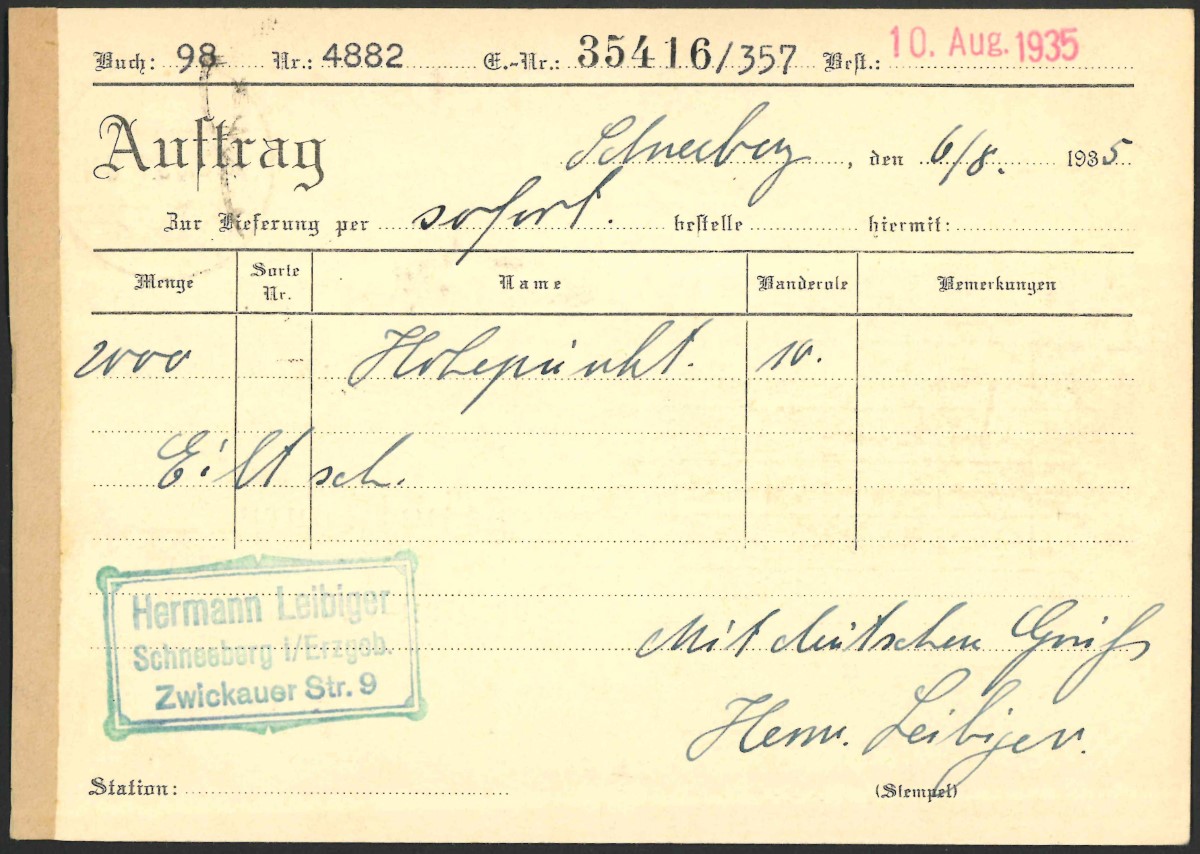 Buch: 98 Nr.: 4882 E.-Nr.: 35416/357 Best.: 10. Aug. 1935
Auftrag Schneeberg, den 6/8. 1935
Zur Lieferung per sofort. bestelle hiermit:
Menge Sorte Nr. Name Banderole Bemerkungen
2000 Höhepunkt. 10.
Eilt sch.
Hermann Leibiger
Schneeberg i/Erzgeb.
Zwickauer Str. 9
Mit deutschen Gruß
Herm. Leibiger.
Station: (Stempel)